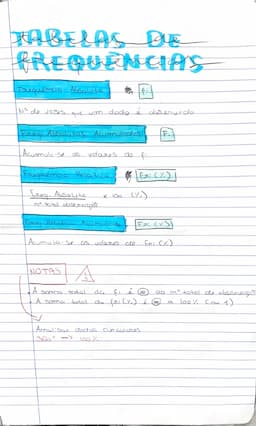 TABELAS DE
FREQUÊNCIAS
Frequência Absoluta → fi
Nº de vezes que um dado é observado
Freq. Absoluta Acumulada → Fi
Acumula-se os valores do fi
Frequência Relativa → fri (%)
Freq. Absoluta x 100 (%)
nº total observações
Freq. Relativa Acumulada → Fri (%)
Acumula-se os valores de fri (%)
NOTAS
A soma total de fi é = ao nº total de observações
A soma total de fri (%) é = a 100% (ou 1)
Analisar dados circulares
360° → 100%